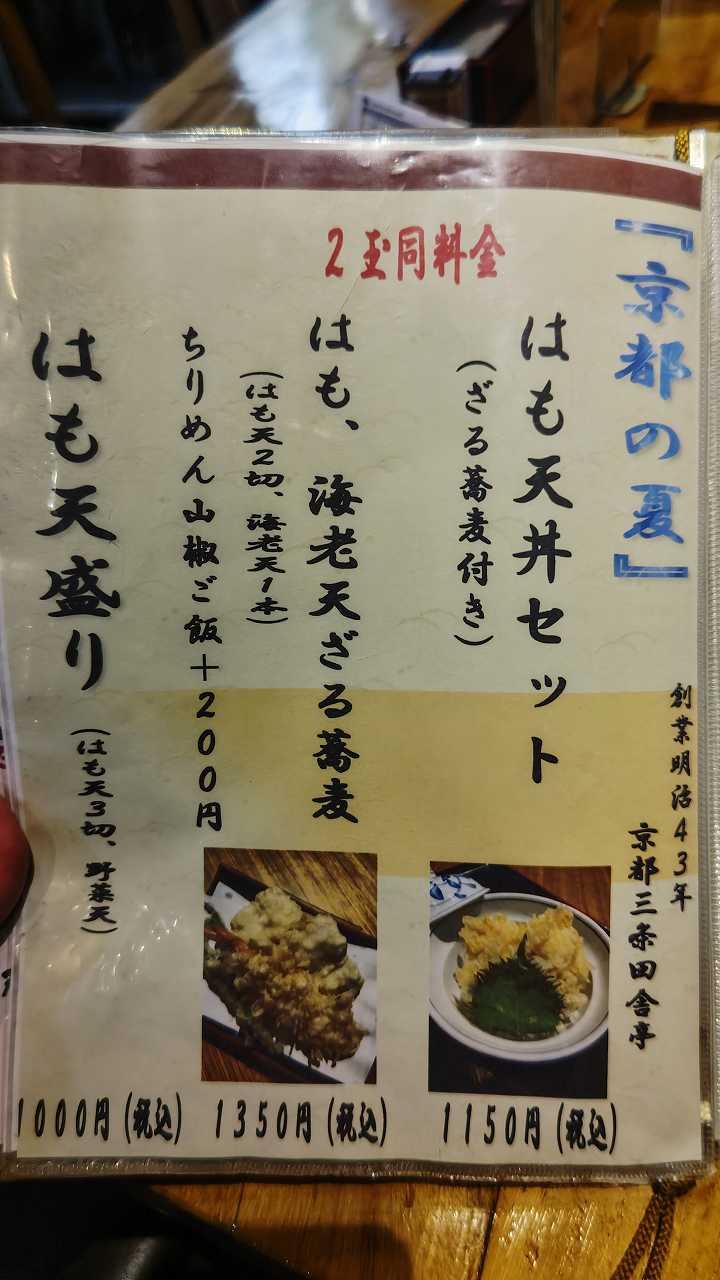 『京都の夏』
創業明治43年
京都三条田舎亭
はも天丼セット
(ざる蕎麦付き)
1150円(税込)
2玉同料金
はも、海老天ざる蕎麦
(はも天2切、海老天1本)
ちりめん山椒ご飯+200円
1350円(税込)
はも天盛り
(はも天3切、野菜天)
1000円(税込)